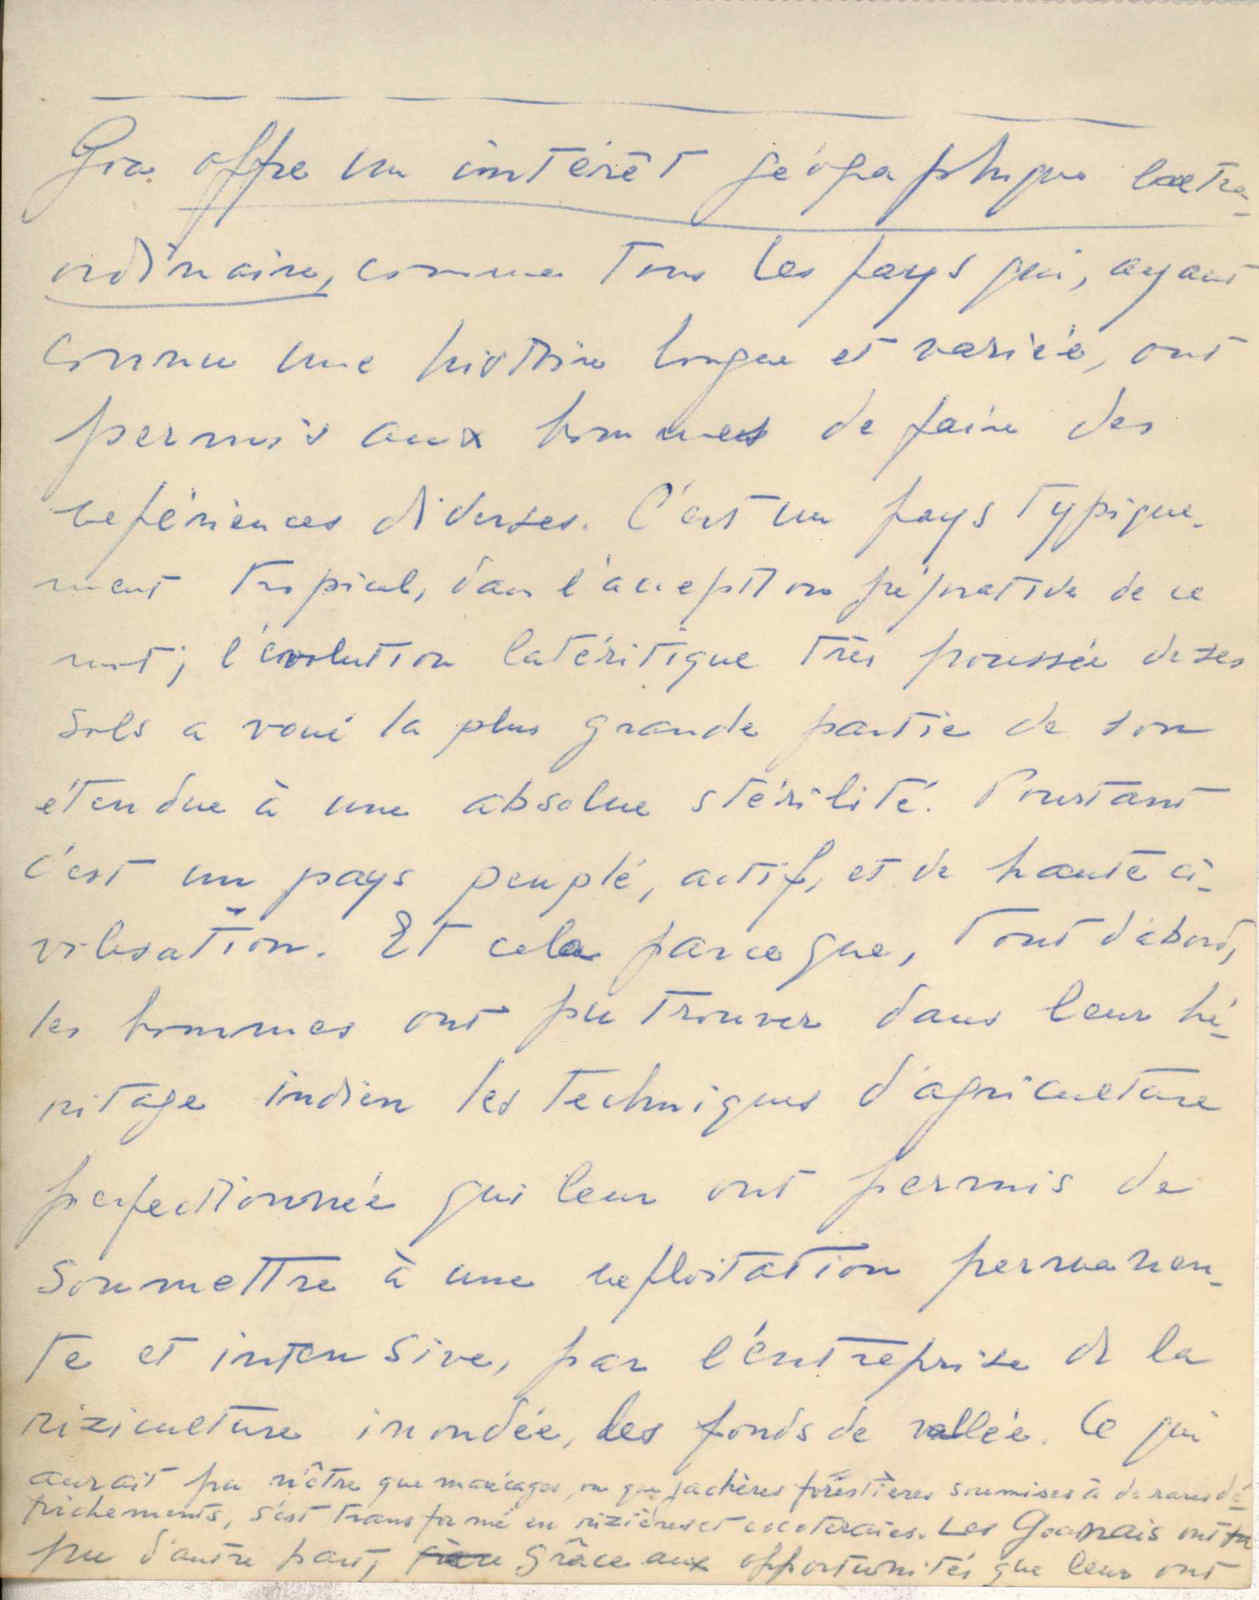 Goa offre un intérêt géographique extra-
ordinaire, comme tous les pays qui, ayant
connu une histoire longue et variée, ont
permis aux hommes de faire des
expériences diverses. C'est un pays typique-
ment tropical, dans l'acception péjorative de ce
mot; l'évolution latéritique très poussée de ses
sols a voué la plus grande partie de son
étendue à une absolue stérilité. Pourtant
c'est un pays peuplé, actif, et de haute ci-
vilisation. Et cela parce que, tout d'abord,
les hommes ont pu trouver dans leur hé-
ritage indien les techniques d'agriculture
perfectionnée qui leur ont permis de
soumettre à une exploitation permanen-
te et intensive, par l'entreprise de la
riziculture inondée, les fonds de vallée. Ce qui
aurait pu n'être que marécages, ou que jachères forestières soumises à de rares dé-
frichements, s'est transformé en rizières et cocoteraies. Les Goanais ont
pu d'autre part, grâce aux opportunités que leur ont